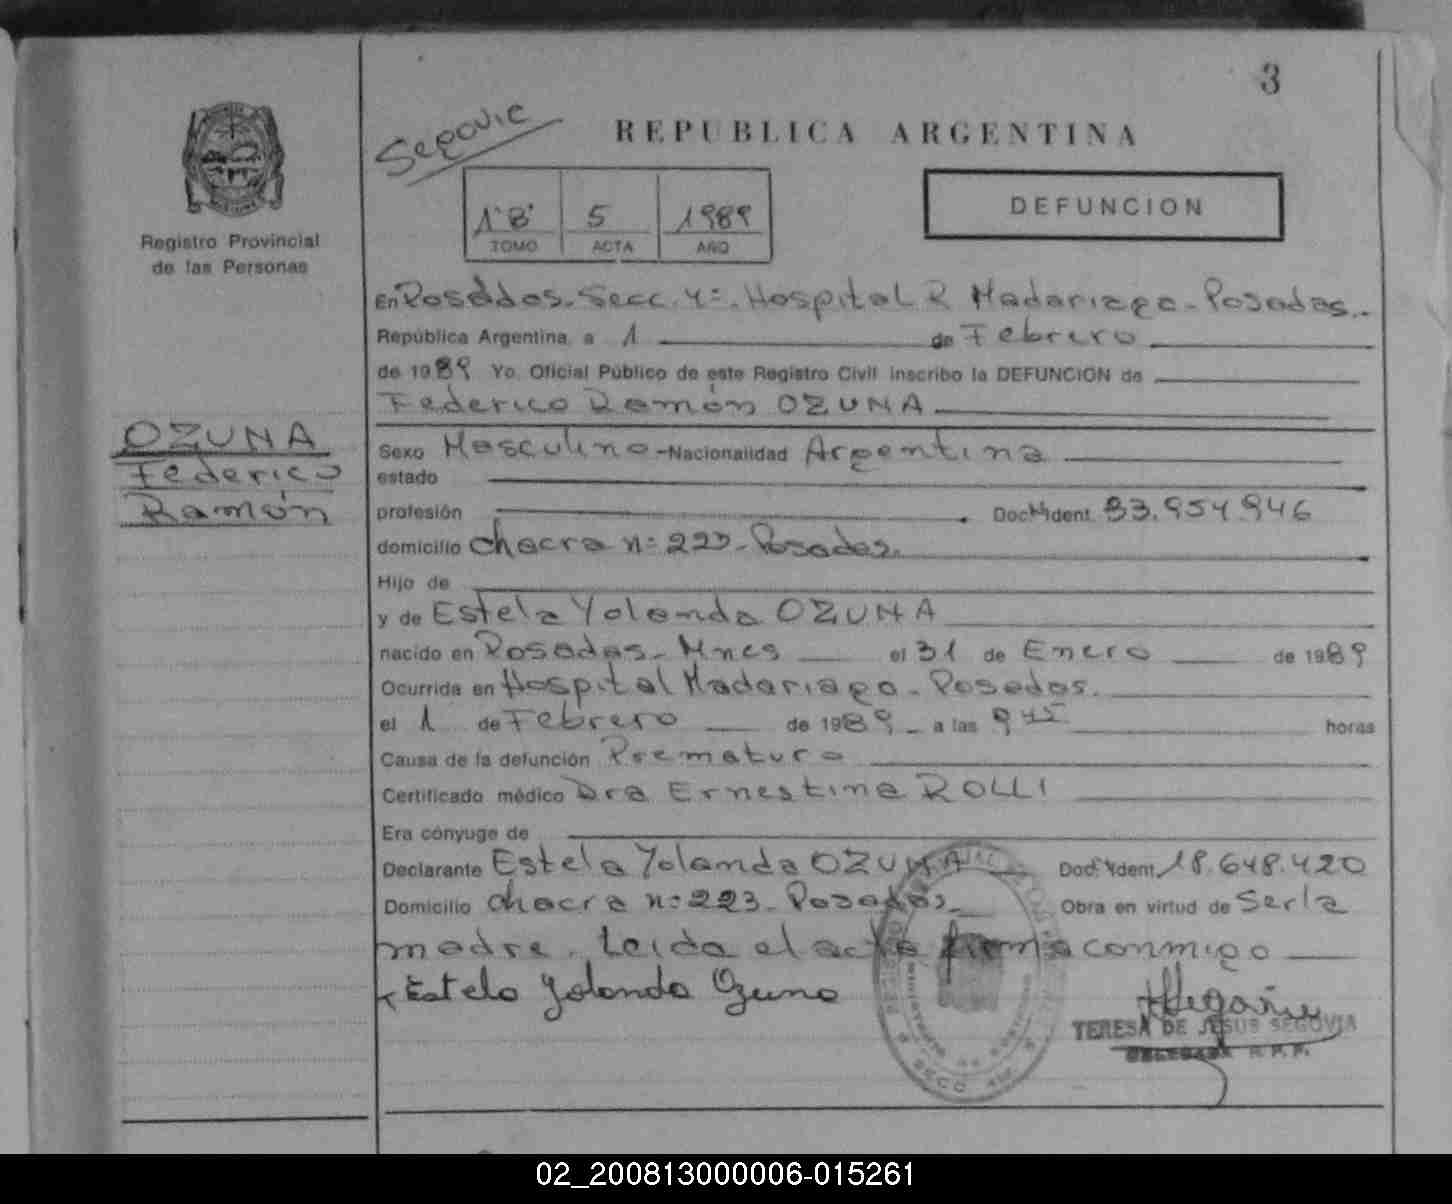 3
Segovia
REPUBLICA ARGENTINA
1"B" 5 1989
TOMO ACTA AÑO
DEFUNCION
Registro Provincial
de las Personas
En Posadas. Secc. 4ª. Hospital R Madariaga - Posadas.-
República Argentina, a 1 de Febrero
de 1989 Yo, Oficial Público de este Registro Civil inscribo la DEFUNCION de
Federico Ramón OZUNA
OZUNA
Federico
Ramón
Sexo Masculino - Nacionalidad Argentina
estado
profesión Doc. Ident. 33.954.946
domicilio chacra nº 223 - Posadas.
Hijo de
y de Estela Yolanda OZUNA
nacido en Posadas - Mnes el 31 de Enero de 1989
Ocurrida en Hospital Madariaga - Posadas.
el 1 de Febrero de 1989 - a las 9 45 horas
Causa de la defunción Prematuro
Certificado médico Dra Ernestina ROLLI
Era cónyuge de
Declarante Estela Yolanda OZUNA Doc. Ident. 18.648.420
Domicilio chacra nº 223 - Posadas - Obra en virtud de Ser la
madre. Leida el acta firma conmigo
Estela Yolanda Ozuna
TERESA DE JESUS SEGOVIA
DELEGADA R.P.P.
02_200813000006-015261